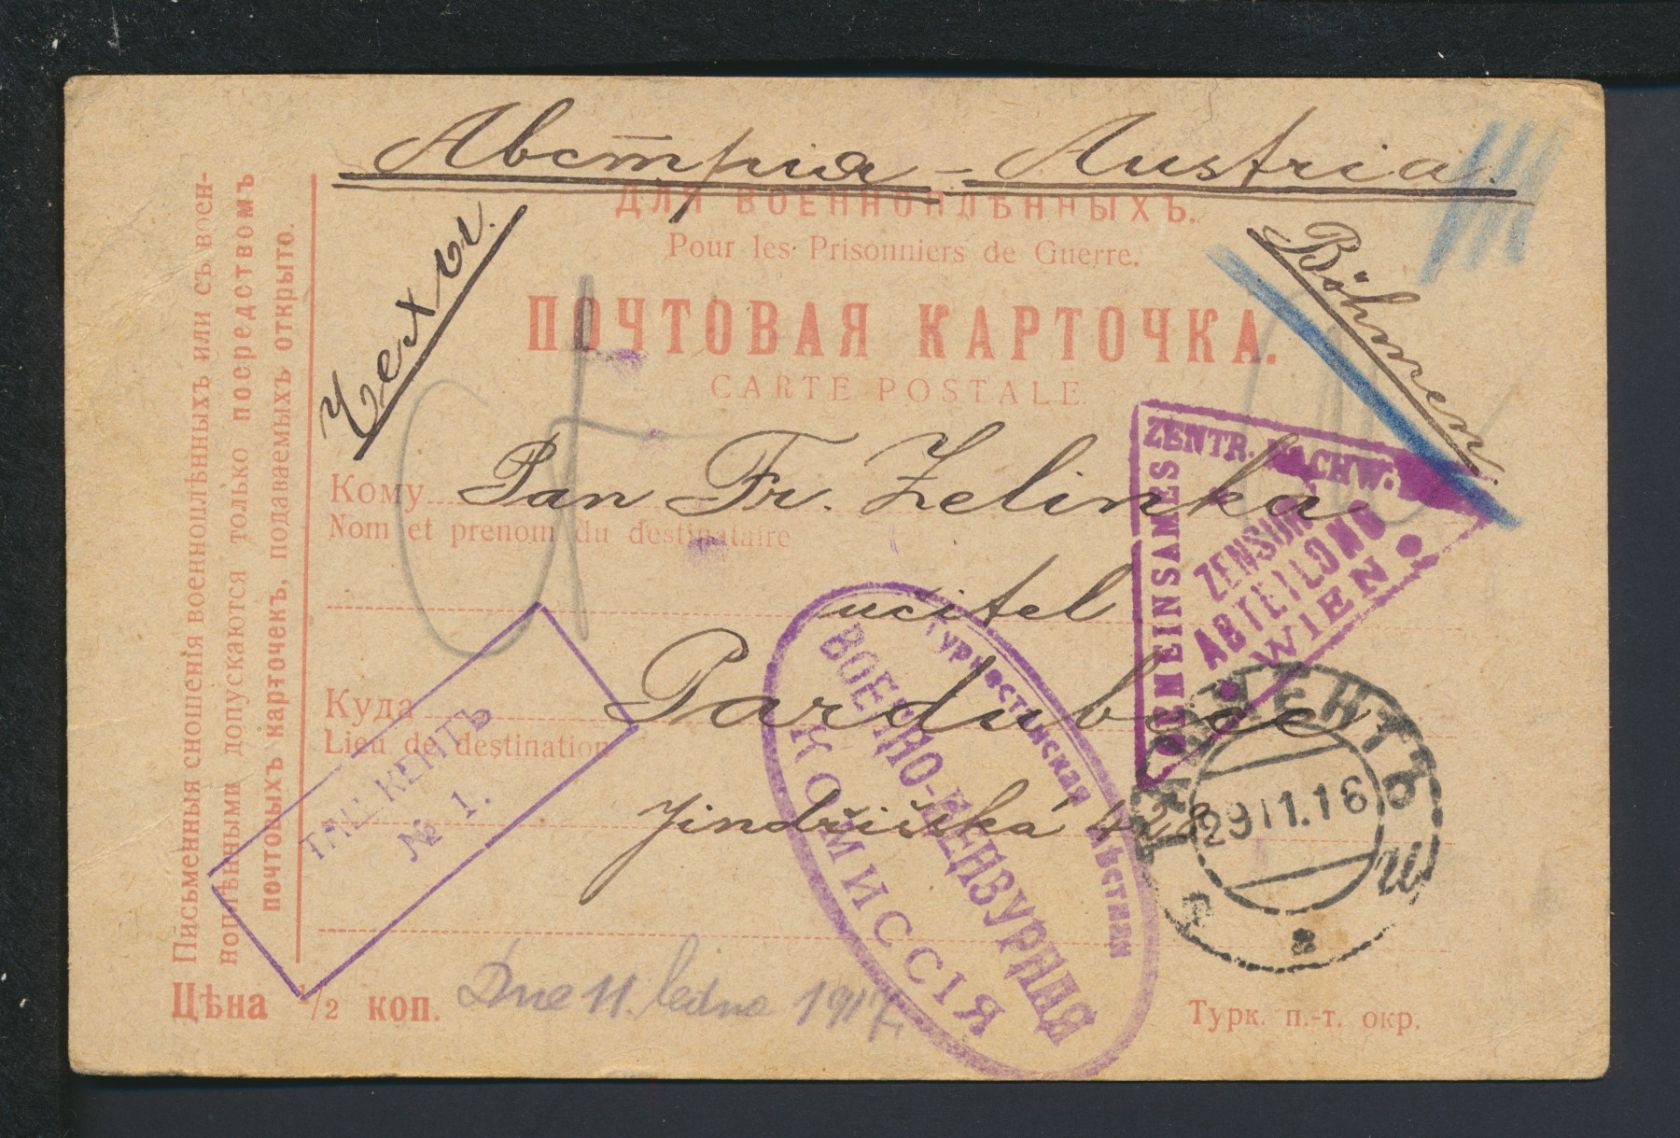 Австрія - Austria.
ДЛЯ ВОЕННОПЛѢННЫХЪ.
Pour les Prisonniers de Guerre.
Чехы.
Böhmen
ПОЧТОВАЯ КАРТОЧКА.
CARTE POSTALE.
Кому Pan Fr. Zelinka
Nom et prenom du destinataire
učitel
Куда Pardubice
Lieu de destination
Jindřišská 422
Письменныя сношенія военноплѣнныхъ или съ воен-
ноплѣнными допускаются только посредствомъ
почтовыхъ карточекъ, подаваемыхъ открыто.
Цѣна 1/2 коп.
Dne 11. ledna 1917
Турк. п.-т. окр.
ТАШКЕНТЪ
№ 1.
Туркестанская
ВОЕННО-ЦЕНЗУРНАЯ
КОМИССІЯ
ZENTR. NACHW:
ZENSUR
ABTEILUNG
WIEN
ТАШКЕНТЪ
29 11.16